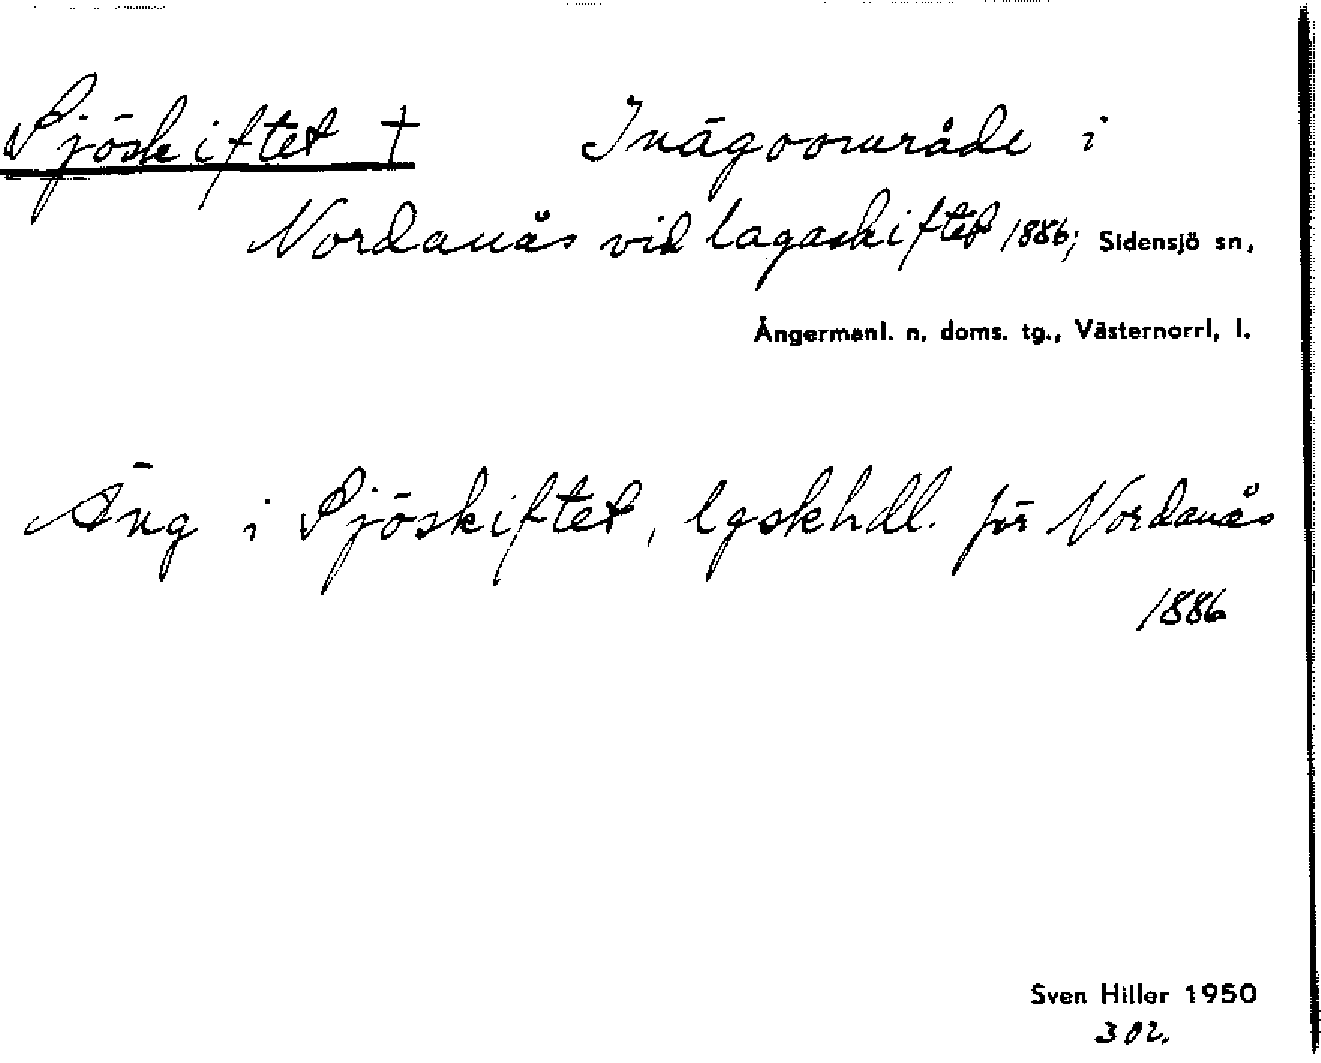 Sjöskiftet † Inägoområde i
Nordanås vid lagaskiftet 1886; Sidensjö sn,
Ångermanl. n. doms. tg., Västernorrl. l.
Äng i Sjöskiftet, lgskhdl. för Nordanås
1886
Sven Hiller 1950
302.